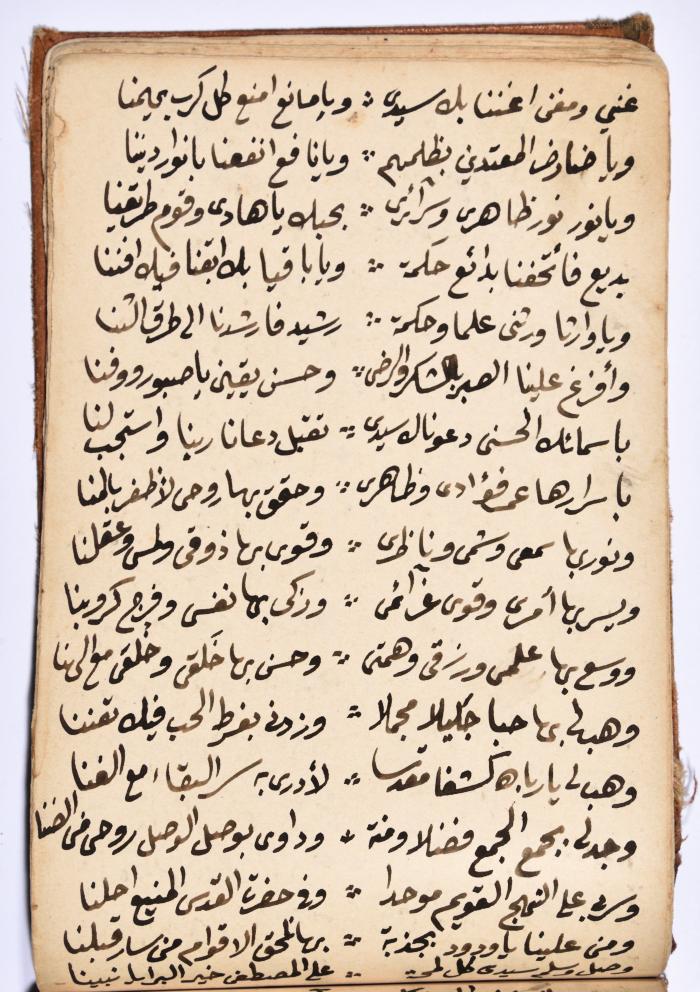 غني ومغنى اغننا بك سيدى ∴ ويا مانع امنع كل كرب يهيمنا
ويا ضار ضر المعتدين بظلمهم ∴ ويا نافع انفعنا بانوار ديننا
ويا نور نور ظاهرى وسرائرى ∴ بحبك يا هادى وقوم طريقنا
بديع فأتحفنا بدائع حكمة ∴ ويا باقيا بك ابقنا فيك افننا
ويا وارثا ورثنى علما وحكمة ∴ رشيد فارشدنا الى طرق الثنا
وأفرغ علينا الصبر بالشكر والرضى ∴ وحسن يقين يا صبور ووفنا
باسمائك الحسنى دعوناك سيدى ∴ تقبل دعانا ربنا واستجب لنا
باسرارها عمر فؤادى وظاهرى ∴ وحقق بها روحى لأظفر بالمنا
ونور بها سمعى وشمى وناظرى ∴ وقوى بها ذوقى ولمسى وعقلنا
ويسر بها أمرى وقوى عزائمى ∴ وزكى بها نفسى وفرج كروبنا
ووسع بها علمى ورزقى وهمتى ∴ وحسن بها خَلقى وخُلقى مع الهنا
وهب لى بها حبا جليلا مجملا ∴ وزدنى بفرط الحب فيك تفننا
وهب لى يا رباه كشفا مقدسا ∴ لأدرى به سر البقاء مع الفنا
وجد لى بجمع الجمع فضلا ومنة ∴ وداوى بوصل الوصل روحى من الضنا
وسر بى على النهج القويم موحدا ∴ وفى حضرت القدس المنيع احلنا
ومن علينا يا ودود بجذبة ∴ بها نلحق الاقوام من سار قبلنا
وصل وسلم سيدى كل لمحة ∴ على المصطفى خير البرايا نبينا